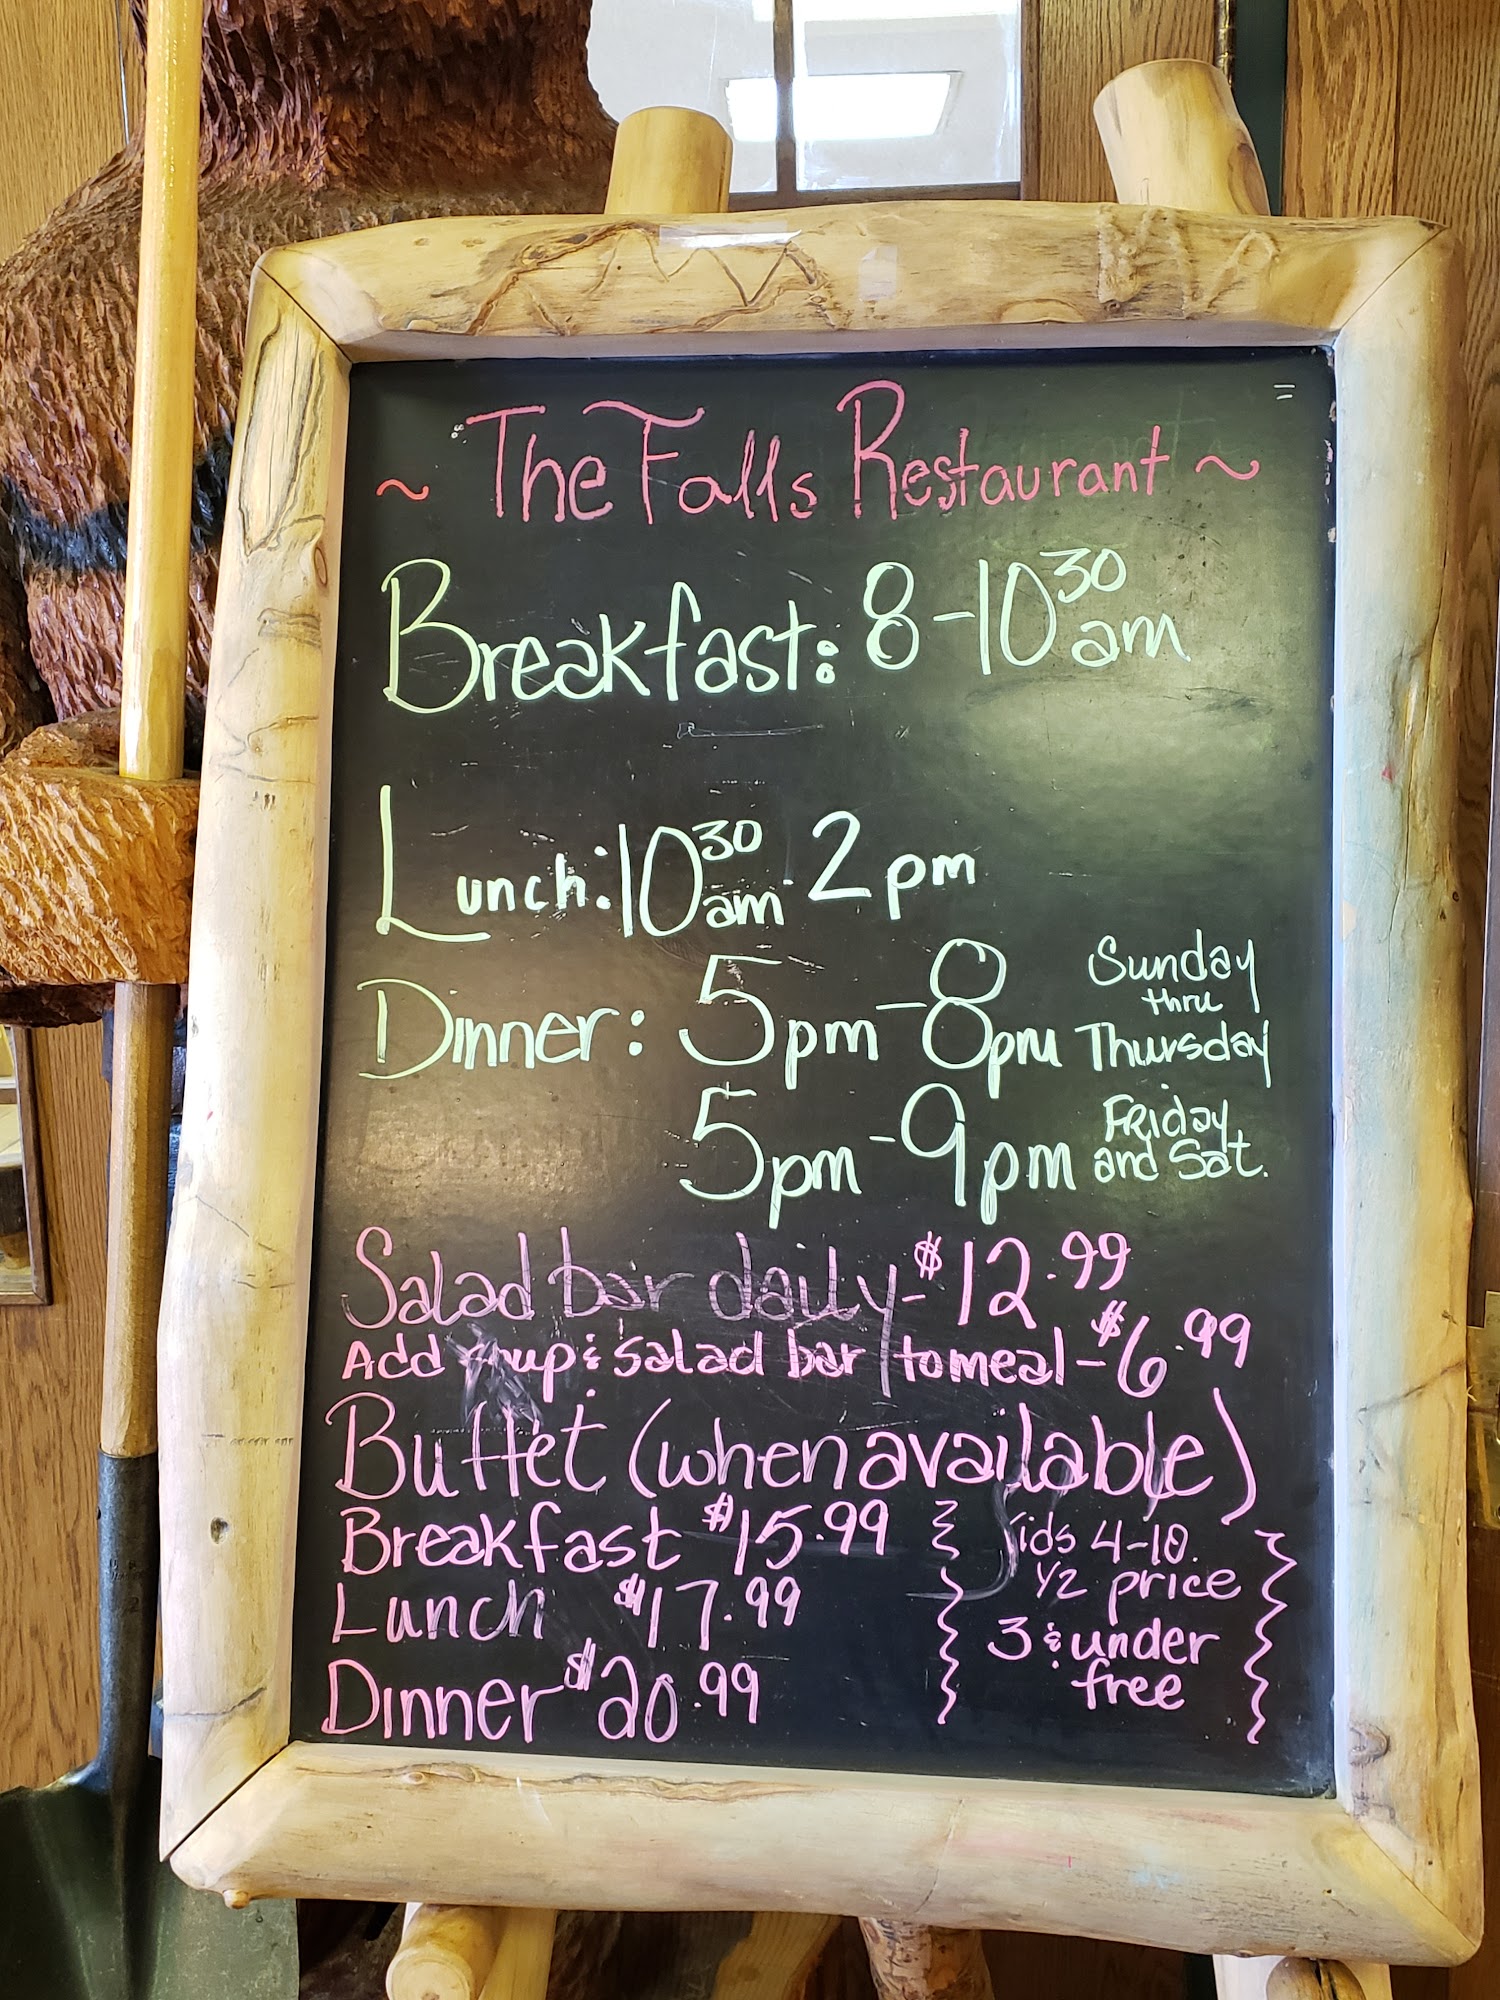 ~ The Falls Restaurant ~
Breakfast: 8-10 30 am
Lunch: 10 30 am - 2 pm
Dinner: 5pm - 8pm Sunday thru Thursday
5pm - 9pm Friday and Sat.
Salad bar daily - $12.99
Add soup & salad bar to meal - $6.99
Buffet (when available)
Breakfast $15.99
Lunch $17.99
Dinner $20.99
Kids 4-10
1/2 price
3 & under
free